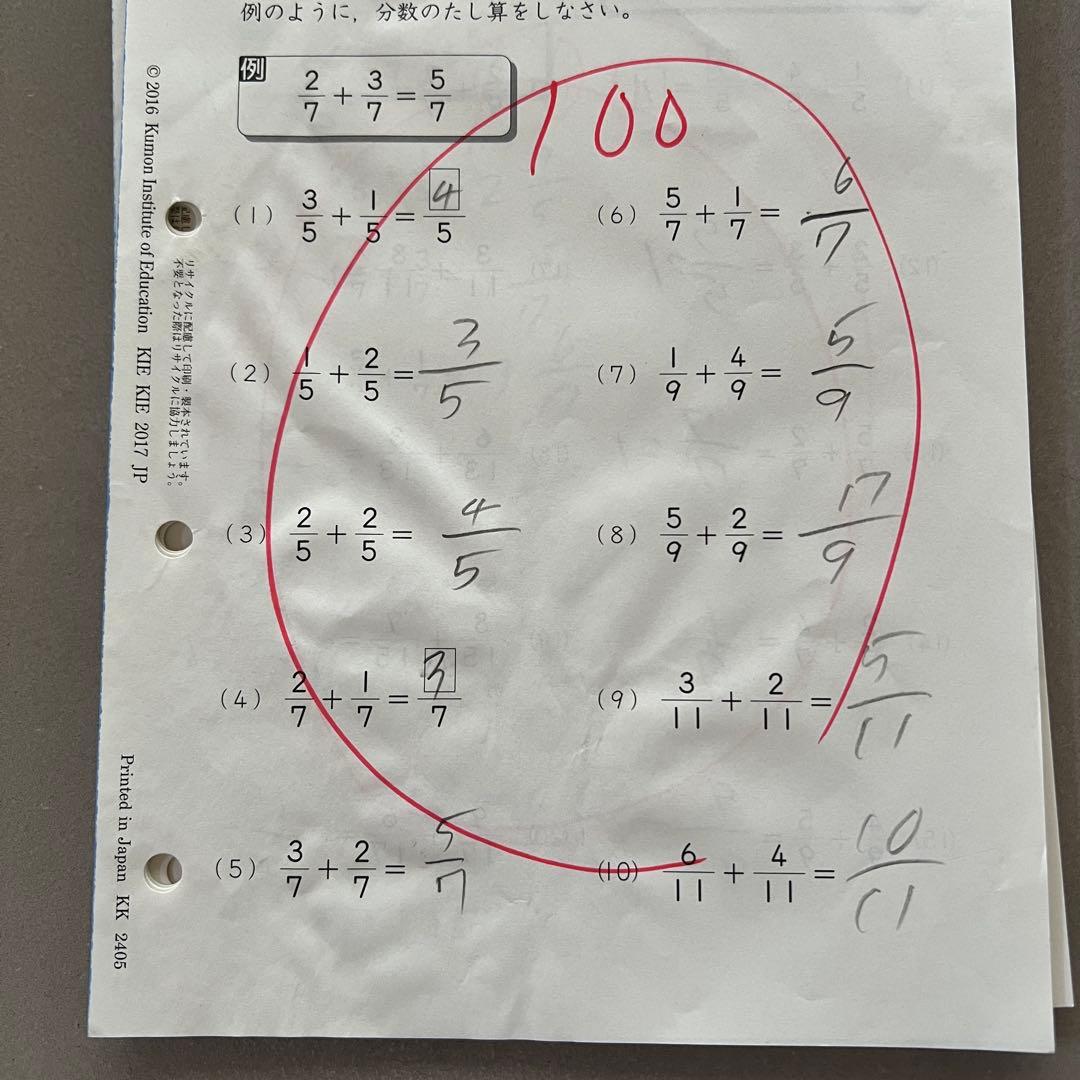 例のように，分数のたし算をしなさい。
例
2/7 + 3/7 = 5/7
100
(1) 3/5 + 1/5 = 4/5
(2) 1/5 + 2/5 = 3/5
(3) 2/5 + 2/5 = 4/5
(4) 2/7 + 1/7 = 3/7
(5) 3/7 + 2/7 = 5/7
(6) 5/7 + 1/7 = 6/7
(7) 1/9 + 4/9 = 5/9
(8) 5/9 + 2/9 = 17/9
(9) 3/11 + 2/11 = 5/11
(10) 6/11 + 4/11 = 10/11
© 2016 Kumon Institute of Education KIE KIE 2017 JP
リサイクルに配慮して印刷・製本されています。
不要となった際はリサイクルに協力しましょう。
Printed in Japan KK 2405